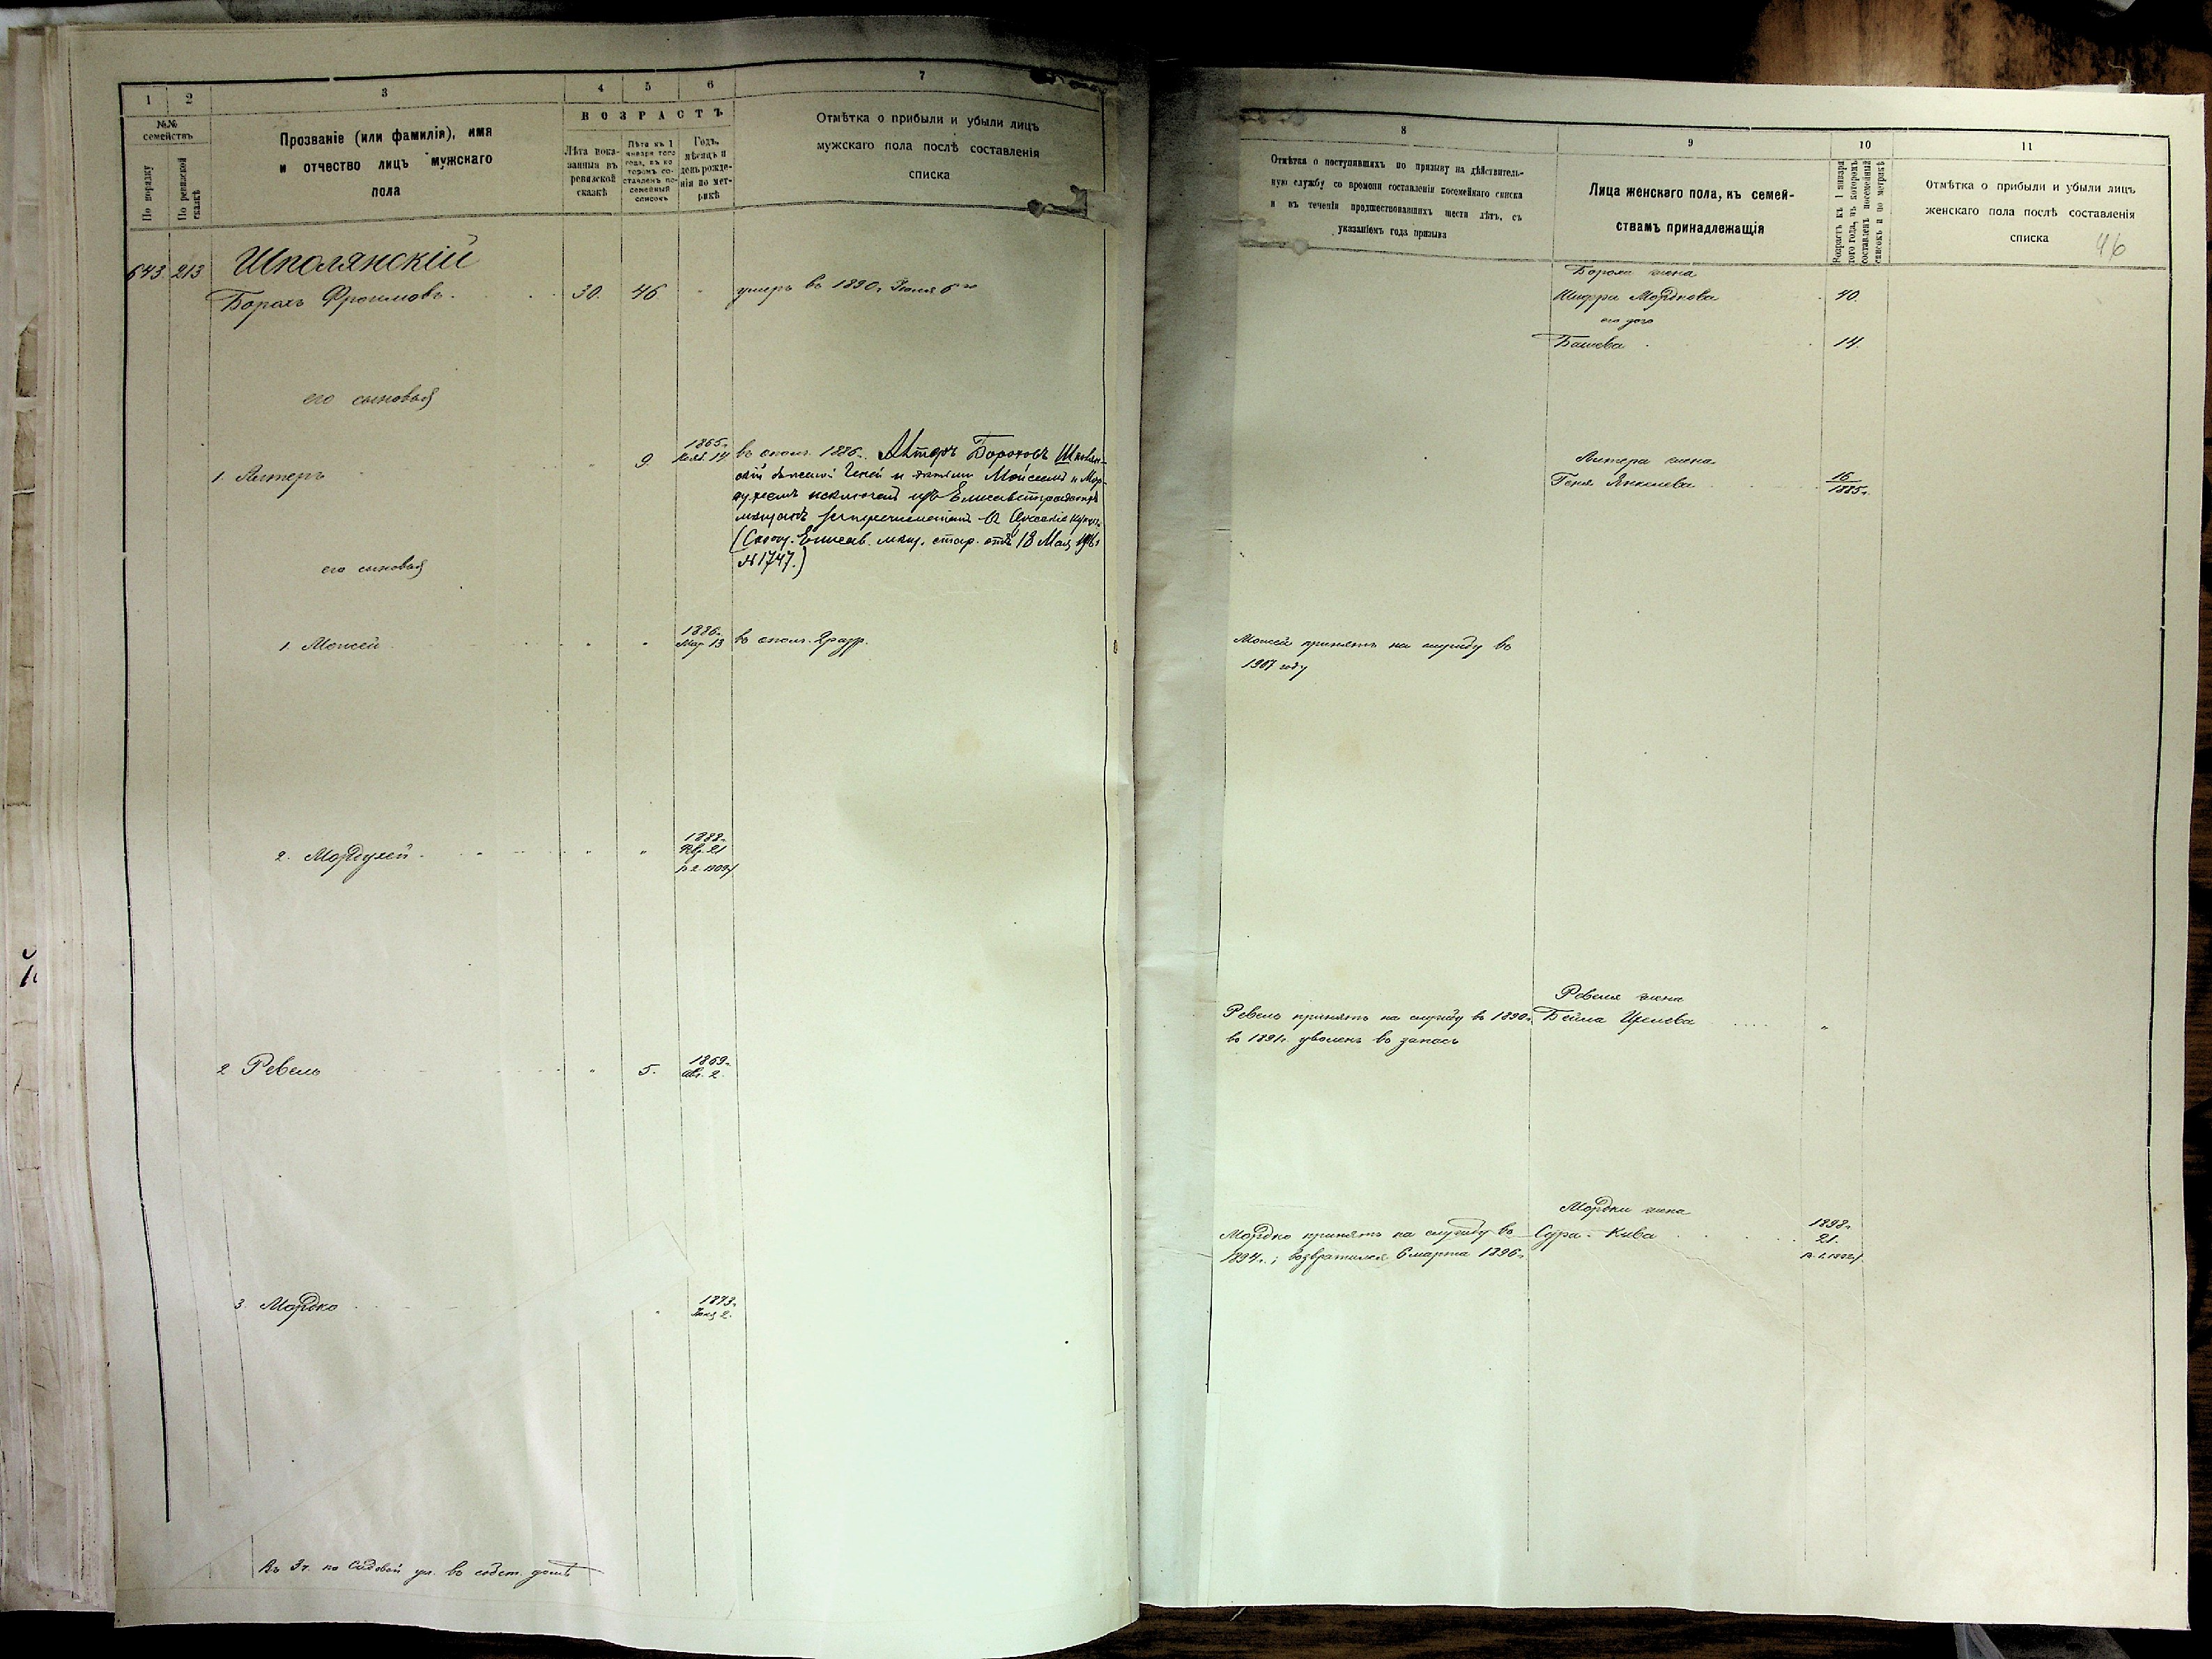 1
2
3
4
5
6
7
№№
семействъ
По порядку
По ревизской
сказкѣ
Прозваніе (или фамилія), имя
и отчество лицъ мужскаго
пола
ВОЗРАСТЪ
Лѣта пока-
занныя въ
ревизской
сказкѣ
Лѣта къ 1
января того
года, въ ко
торомъ со-
ставленъ по-
семейный
списокъ
Годъ,
мѣсяцъ и
день рожде-
нія по мет-
рикѣ
Отмѣтка о прибыли и убыли лицъ
мужскаго пола послѣ составленія
списка
643. 213
Шполянскій
Борахъ Фроимовъ. 30. 46 умеръ въ 1890 г.
его сыновья
1. Алтеръ 9. 1865 г.
14
въ опол. 1886 г. Алтеръ Бороховъ Шполян-
скій съ женой Геней и дѣтьми Моисеемъ и Мор-
духеемъ исключенъ изъ Елисаветградскихъ
мѣщанъ
(Сообщ. Елисав. мѣщ. стар. отъ 18 Мая
№ 1747.)
его сыновья
1. Моисей 1886 г.
Мар 13
въ опол. 2 разр.
2. Мордухей 1888 г.
21
2 Ревель 5. 1869 г.
2.
3. Мордко 1873 г.
2.
Въ 3 ч. по Садовой ул. въ собст. домѣ
8
9
10
11
Отмѣтка о поступившихъ по призыву на дѣйствитель-
ную службу со времени составленія посемейнаго списка
и въ теченіи предшествовавшихъ шести лѣтъ, съ
указаніемъ года призыва
Лица женскаго пола, къ семей-
ствамъ принадлежащія
Возрастъ къ 1 января
того года, въ которомъ
составленъ посемейный
списокъ и по метрикѣ
Отмѣтка о прибыли и убыли лицъ
женскаго пола послѣ составленія
списка
46
Бораха жена
Шифра Мордкова 40.
его дочь
Башева 14.
Алтера жена
Геня Янкелева 16
1885 г.
Моисей принятъ на службу въ
1907 году
Ревеля жена
Ревель принятъ на службу въ 1890 г. Бейла
въ 1891 г. уволенъ въ запасъ
Мордки жена
Мордко принятъ на службу въ Сура-Хива 1898 г.
21.
1894 г.; возвратился 6 марта 1896 г.